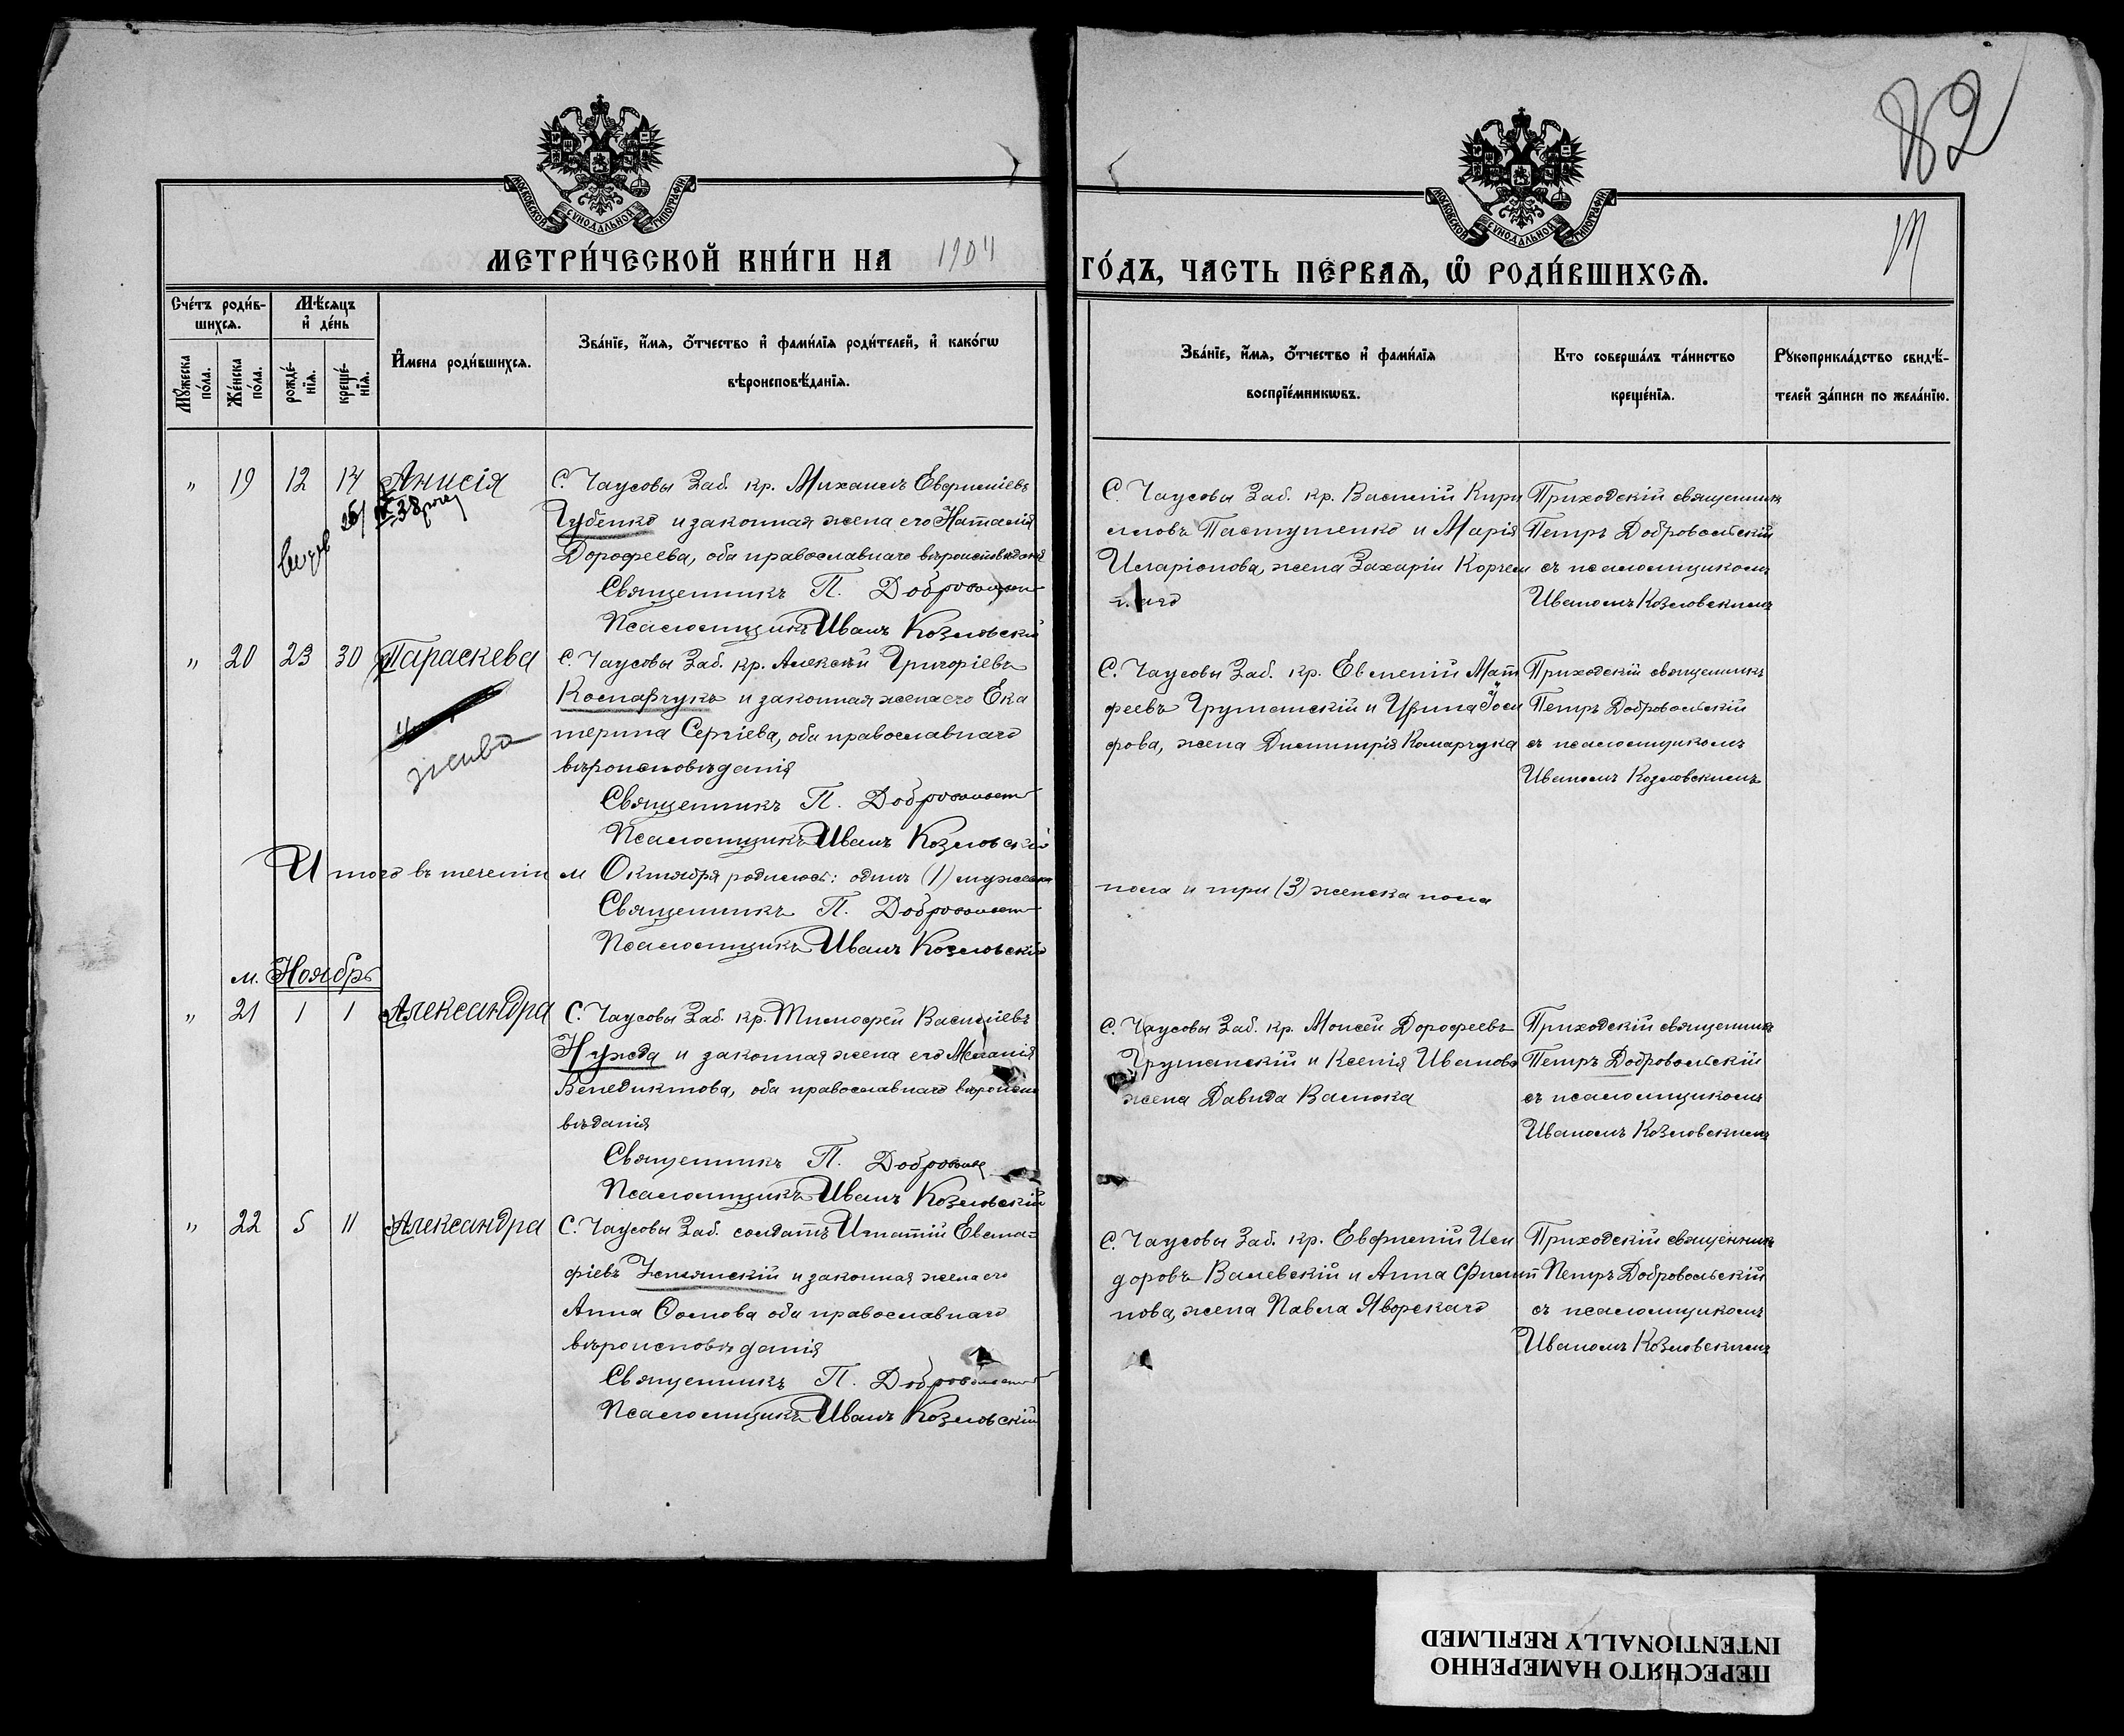 82
МОСКОВСКОЙ СѴНОДАЛЬНОЙ ТИПОГРАФІИ
МОСКОВСКОЙ СѴНОДАЛЬНОЙ ТИПОГРАФІИ
МЕТРИ́ЧЕСКОЙ КНИ́ГИ НА 1904
ГО́ДЪ, ЧАСТЬ ПЕ́РВАѦ, Ѽ РОДИ́ВШИХСѦ.
Сче́тъ роди́в-
шихсѧ.
Мѣ́сѧцъ
и҆ де́нь
Мꙋ́жеска
по́ла.
Же́нска
по́ла.
рожде́-
нїѧ.
креще́-
нїѧ.
И҆мена̀ роди́вшихсѧ.
Зва́нїе, и҆́мѧ, ѻ҆́тчество и҆ фами́лїѧ роди́телей, и҆ како́гѡ
вѣроисповѣ́данїѧ.
Зва́нїе, и҆́мѧ, ѻ҆́тчество и҆ фами́лїѧ
воспрїе́мникѡвъ.
Кто̀ соверша́лъ та́инство
креще́нїѧ.
Рꙋкоприкла́дство свидѣ́-
телей за́писи по жела́нїю.
" 19 12 14 Анисія
С. Чаусовы Заб. кр. Михаилъ Евфиміевъ
Губенко и законная жена его Наталія
Дорофеева, оба православнаго вѣроисповѣданія
Священникъ П. Добровольскій
Псаломщикъ Иванъ Козловскій
С. Чаусовы Заб. кр. Василій Кири
лловъ Пастушенко и Марія
Иларіонова, жена Захарія Корчем
наго
Приходскій священникъ
Петръ Добровольскій
съ псаломщикомъ
Иваномъ Козловскимъ
" 20 23 30 Параскева
жива
С. Чаусовы Заб. кр. Алексѣй Григоріевъ
Комарчукъ и законная жена его Ека
терина Сергіева, оба православнаго
вѣроисповѣданія
Священникъ П. Добровольскій
Псаломщикъ Иванъ Козловскій
С. Чаусовы Заб. кр. Евменій Мат
феевъ Грушанскій и Ирина Іоси
фова, жена Димитрія Комарчука
Приходскій священникъ
Петръ Добровольскій
съ псаломщикомъ
Иваномъ Козловскимъ
Итого въ теченіи м Октября родилось: одинъ (1) мужеска
пола и три (3) женска пола
Священникъ П. Добровольскій
Псаломщикъ Иванъ Козловскій
м. Ноябрь
" 21 1 1 Александра
С. Чаусовы Заб. кр. Тимофей Василіевъ
Нужда и законная жена его Меланія
Венедиктова, оба православнаго вѣроиспо
вѣданія
Священникъ П. Добровольскій
Псаломщикъ Иванъ Козловскій
С. Чаусовы Заб. кр. Моисей Дорофеевъ
Грушанскій и Ксенія Иванова
жена Давида Валюка
Приходскій священникъ
Петръ Добровольскій
съ псаломщикомъ
Иваномъ Козловскимъ
" 22 5 11 Александра
С. Чаусовы Заб. солдатъ Игнатій Евста=
фіевъ и законная жена его
Анна оба православнаго
вѣроисповѣданія
Священникъ П. Добровольскій
Псаломщикъ Иванъ Козловскій
С. Чаусовы Заб. кр. Евфимій Иси
доровъ Валевскій и Анна Филип
пова, жена Павла Яворскаго
Приходскій священникъ
Петръ Добровольскій
съ псаломщикомъ
Иваномъ Козловскимъ
ПЕРЕСНЯТО НАМЕРЕННО
INTENTIONALLY REFILMED